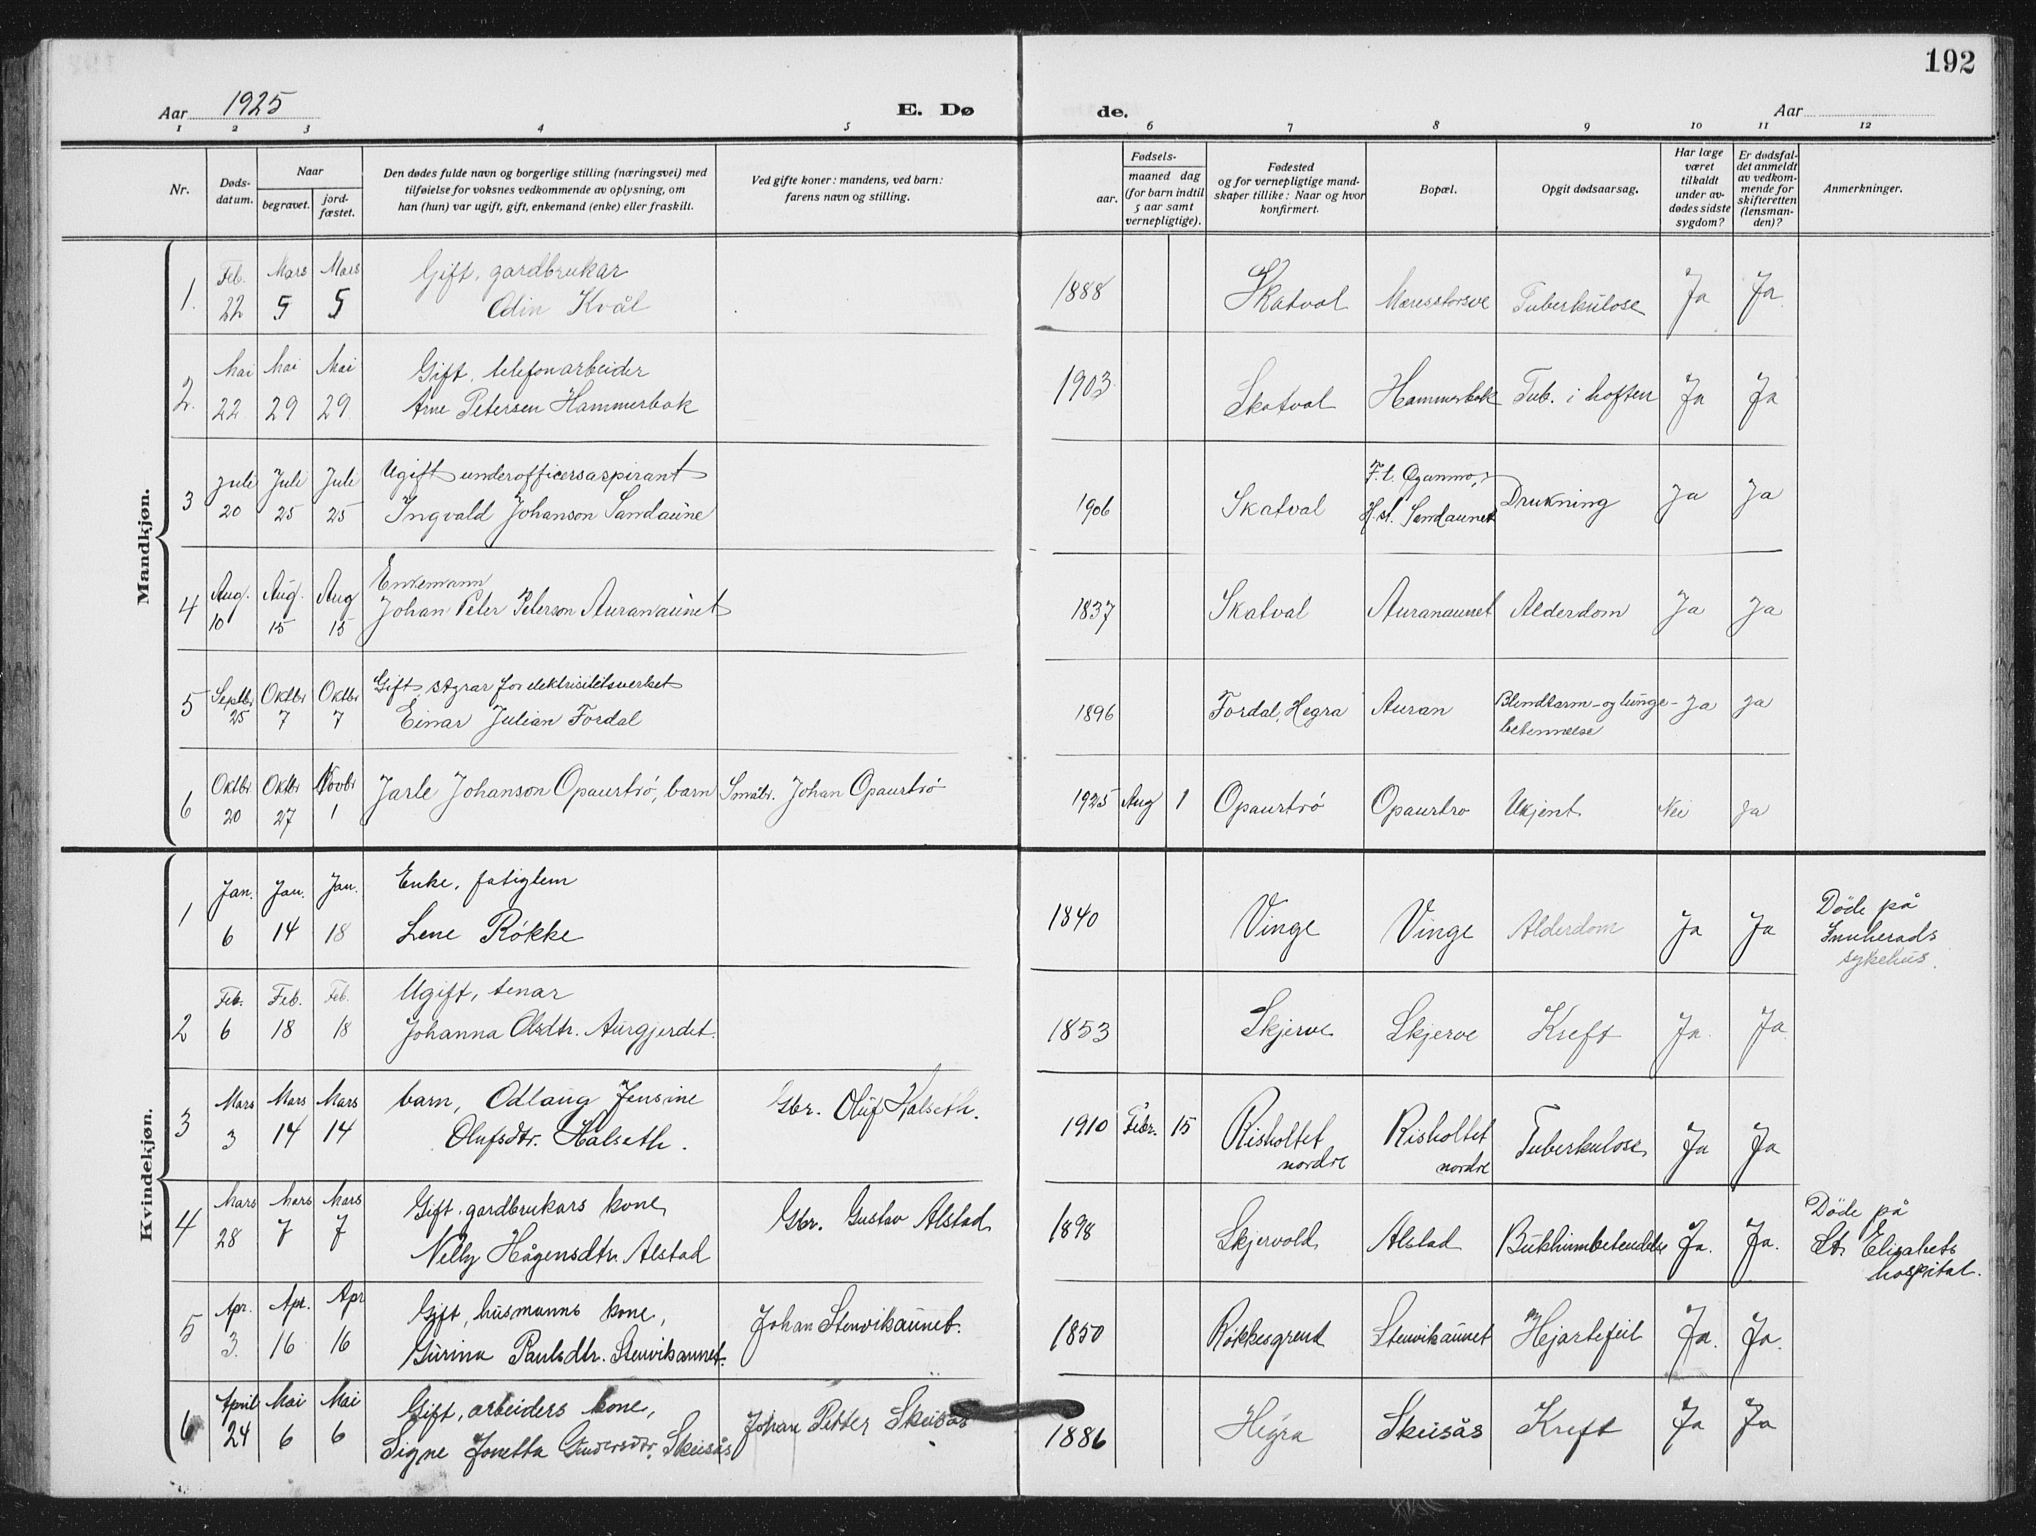 192
Aar 1925
E. Dø
de.
Aar
1 2 3 4 5 6 7 8 9 10 11 12
Nr.
Døds-
datum.
Naar
begravet.
jord-
fæstet.
Den dødes fulde navn og borgerlige stilling (næringsvei) med
tilføielse for voksnes vedkommende av oplysning, om
han (hun) var ugift, gift, enkemand (enke) eller fraskilt.
Ved gifte koner: mandens, ved barn:
farens navn og stilling.
Fødsels-
aar.
maaned dag
(for barn indtil
5 aar samt
vernepligtige).
Fødested
og for vernepligtige mand-
skaper tillike: Naar og hvor
konfirmert.
Bopæl.
Opgit dødsaarsag.
Har læge
været
tilkaldt
under av-
dødes sidste
sygdom?
Er dødsfal-
det anmeldt
av vedkom-
mende for
skifteretten
(lensman-
den)?
Anmerkninger.
Mandkjøn.
1. Feb. 22 Mars 5 Mars 5 Gift, gardbrukar
Odin Kvål
1888 Skatval Tuberkulose Ja Ja
2. Mai 22 Mai 29 Mai 29 Gift, telefonarbeider
Arne Petersen Hammerbak
1903 Skatval Hammerbak Tub. i hoften Ja Ja
3 Juli 20 Juli 25 Juli 25 Ugift underofficersaspirant
Ingvald Johanson Sandaune
1906 Skatval F.t. Øyanmo,
H.st. Sandaunet Drukning Ja Ja
4 Aug. 10 Aug. 15 Aug 15 Enkemann
Johan Peter Peterson Auranaunet
1837 Skatval Auranaunet Alderdom Ja Ja
5 Septbr 25 Oktbr 7 Oktbr 7 Gift, styrar for elektrisitetsverket
Einar Julian Fordal
1896 Fordal, Hegra Auran Blindtarm- og lunge-
betennelse Ja Ja
6 Oktbr 20 Oktbr 27 Novbr 1 Jarle Johanson Opaurtrø, barn Småbr. Johan Opaurtrø
1925 Aug 1 Opaurtrø Opaurtro Ukjent Nei Ja
Kvindekjøn.
1 Jan. 6 Jan. 14 Jan. 18 Enke, fatiglem
Lene Røkke
1840 Vinge Vinge Alderdom Ja Ja Döde på
Innherads
sykehus.
2 Feb. 6 Feb. 18 Feb. 18 Ugift, tenar
Johanna Olsdtr. Aurgjerdet.
1853 Skjerve Skjerve Kreft Ja. Ja
3 Mars 3 Mars 14 Mars 14 barn, Odlaug Jensine
Olufsdtr. Halseth.
Gbr. Oluf Halseth.
1910 Febr. 15 Risholtet
nordre Risholtet
nordre Tuberkulose Ja Ja
4 Mars 28 Mars 7 Mars 7 Gift, gardbrukars kone
Nelly Hågensdtr. Alstad
Gbr. Gustav Alstad
1898 Skjervold Alstad Bukhinnbetendelse Ja. Ja. Döde på
St. Elisabets
hospital.
5 Apr. 3. Apr. 16 Apr 16 Gift, husmanns kone,
Gurina Paulsdtr. Stenvikaunet.
Johan Stenvikaunet.
1850 Røkkesgrend Stenvikaunet Hjartefeil Ja. Ja.
6 April 24 Mai 6 Mai 6 Gift, arbeiders kone,
Signe Jonetta Skeisås
Johan Petter Skeisås
1886 Hegra Skeisås Kreft Ja Ja